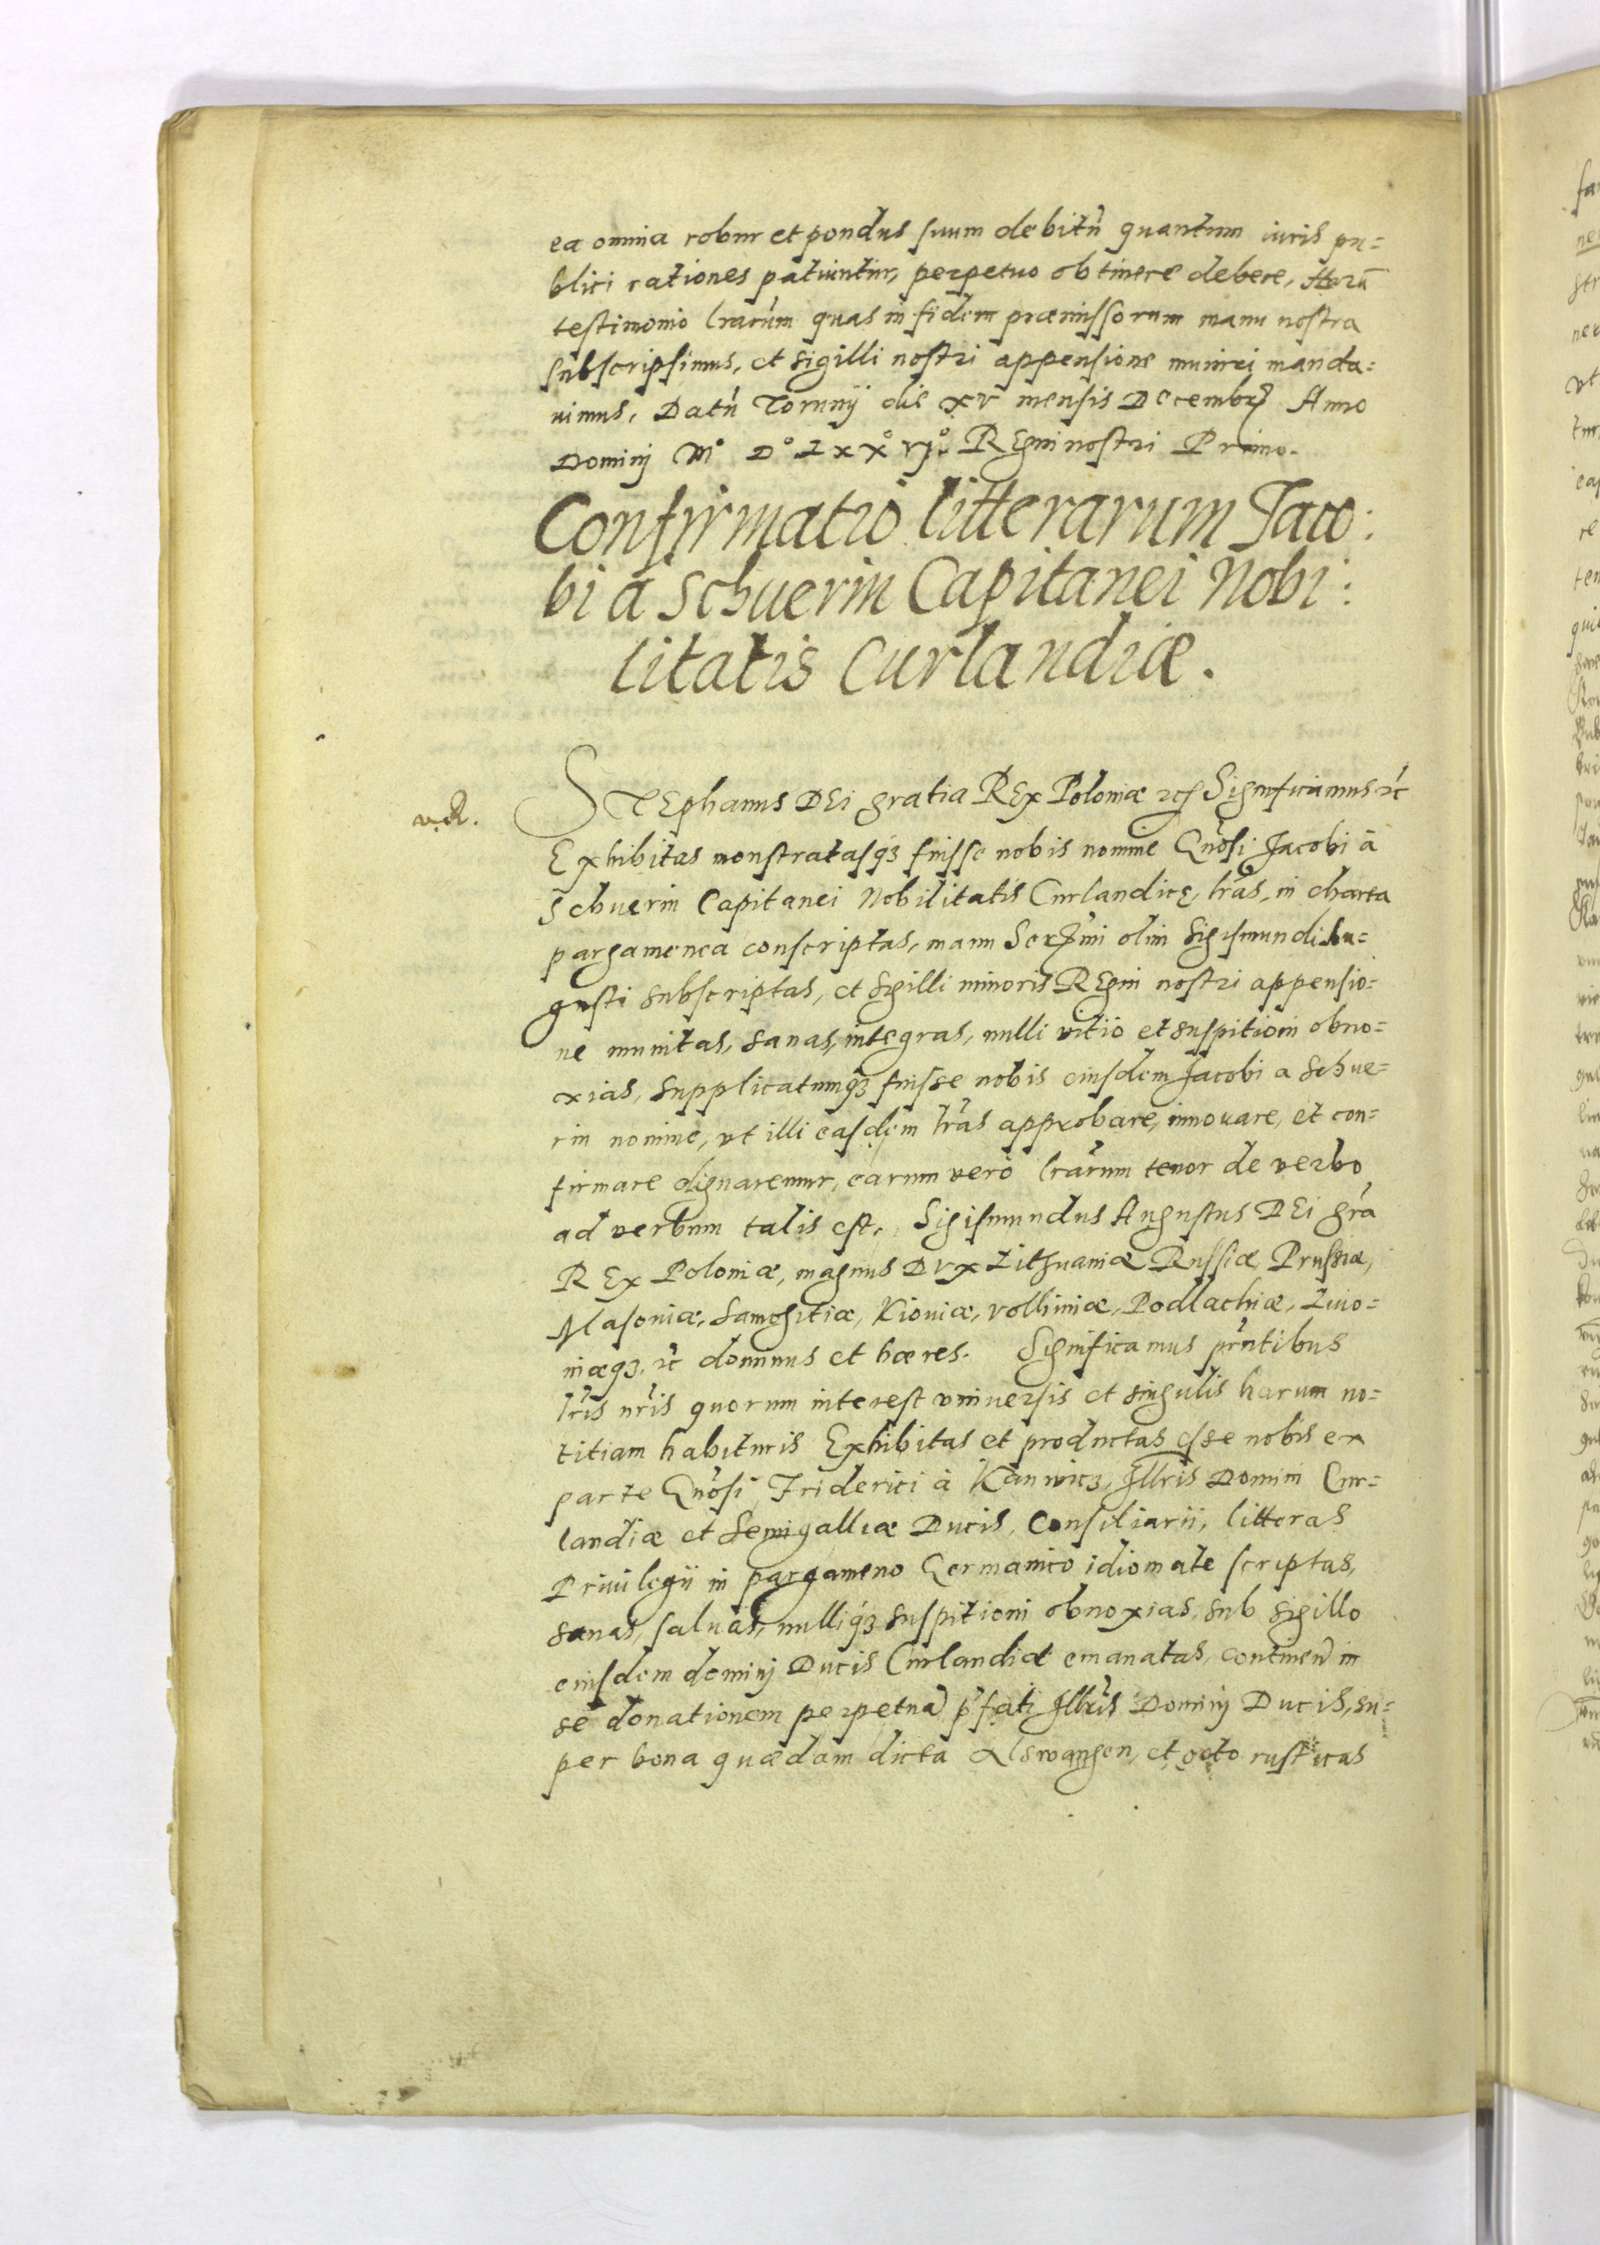 ea omnia robur et pondus suum debitũ quantum iuris pu=
blici rationes patiuntur, perpetuo obtinere debere, Harũ
testimonio lrarum quas in fidem præmissorum manu nostra
subscripsimus, et sigilli nostri appensione muniri manda=
uimus, Datũ Torunij die XV mensis Decembr Anno
Dominj M° D° LXX° VJ° Regni nostri Primo.
Confirmatio litterarum Jaco:
bi à Schuerin Capitanei Nobi:
litatis Curlandiæ.
STEphanus DEi gratia REx Poloniæ etc Significamus etc
Exhibitas monstratasq3 fuisse nobis nomine Gnosi Jacobi à
Schuerin Capitanei Nobilitatis Curlandicę, lras, in charta
pargamenea conscriptas, manu Serẽmi olim Sigismundi Au=
gusti subscriptas, et sigilli minoris REgni nostri appensio=
ne munitas, sanas, integras, nulli vitio et suspitioni obno=
xias, supplicatumq3 fuisse nobis eiusdem Jacobi a Schue=
rin nomine, vt illi easdem lras approbare, innouare, et con=
firmare dignaremur, earum verò lrarum tenor de verbo
ad verbum talis est. Sigismundus Augustus DEi gra
REx Poloniæ, magnus Dvx Lithuaniæ Russiæ Prussiæ,
Masoniæ, Samogitiæ, Kiouiæ, volliniæ, Podlachiæ, Liuo=
niæq3. etc dominus et hæres. Significamus prntibus
lris nris quorum interest vniuersis et singulis harum no=
titiam habituris Exhibitas et productas esse nobis ex
parte Gnosi Friderici à Kanwicz, Jllris Domini Cur=
landiæ et Semigalliæ Ducis, Consiliarii, litteras
Priuilegii in pargameno Germanico idiomate scriptas,
sanas, saluas, nulliq3 suspitioni obnoxias, sub sigillo
eiusdem dominj Ducis Curlandiæ emanatas, continen in
se donationem perpetuã pfati Jllris Dominj Ducis, su=
per bona quædam dicta Alswangen, et octo rusticas